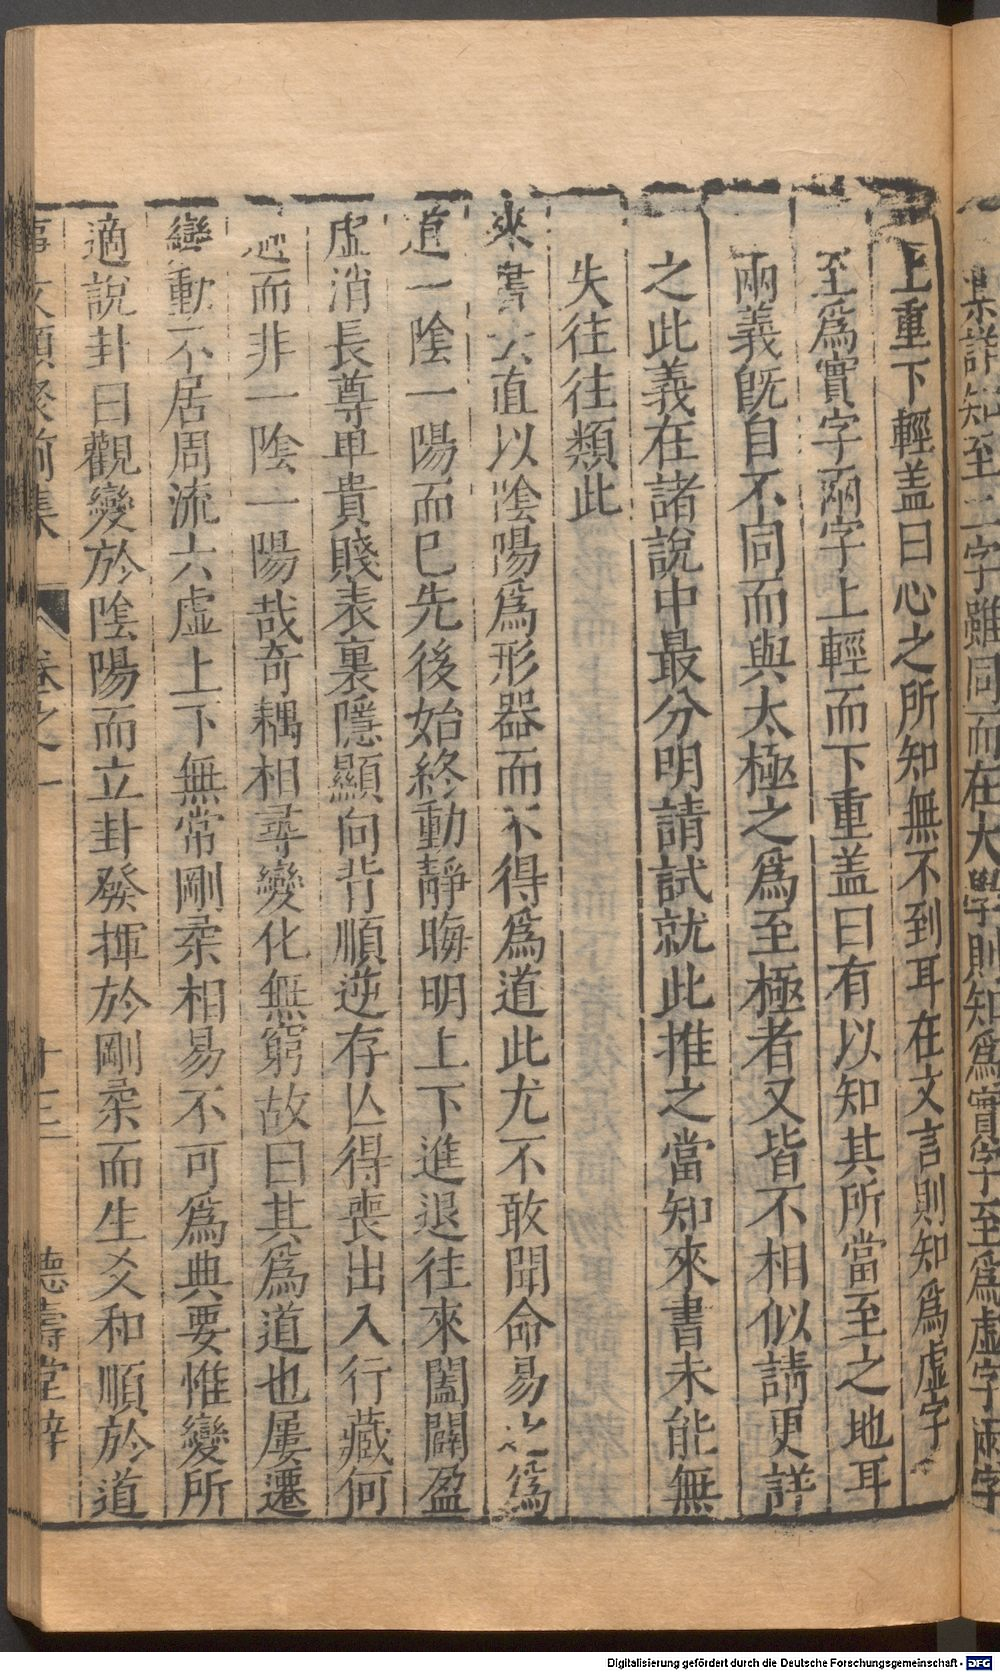 集詳知至二字雖同而在大學則知爲實字至爲虛字兩字
上重下輕盖曰心之所知無不到耳在文言則知爲虛字
至爲實字兩字上輕而下重盖曰有以知其所當至之地耳
兩義旣自不同而與太極之爲至極者又皆不相似請更詳
之此義在諸說中最分明請試就此推之當知來書未能無
失往往類此
來書直以陰陽爲形器而不得爲道此尤不敢聞命易之爲
道一陰一陽而已先後始終動靜晦明上下進退往來闔闢盈
虛消長尊卑貴賤表裏隱顯向背順逆存亾得喪出入行藏何
適而非一陰一陽哉奇耦相尋變化無窮故曰其爲道也屢遷
變動不居周流六虛上下無常剛柔相易不可爲典要惟變所
適說卦曰觀變於陰陽而立卦發揮於剛柔而生爻和順於道
事文類聚前集 卷之一 十三 德壽堂梓
Digitalisierung gefördert durch die Deutsche Forschungsgemeinschaft - DFG